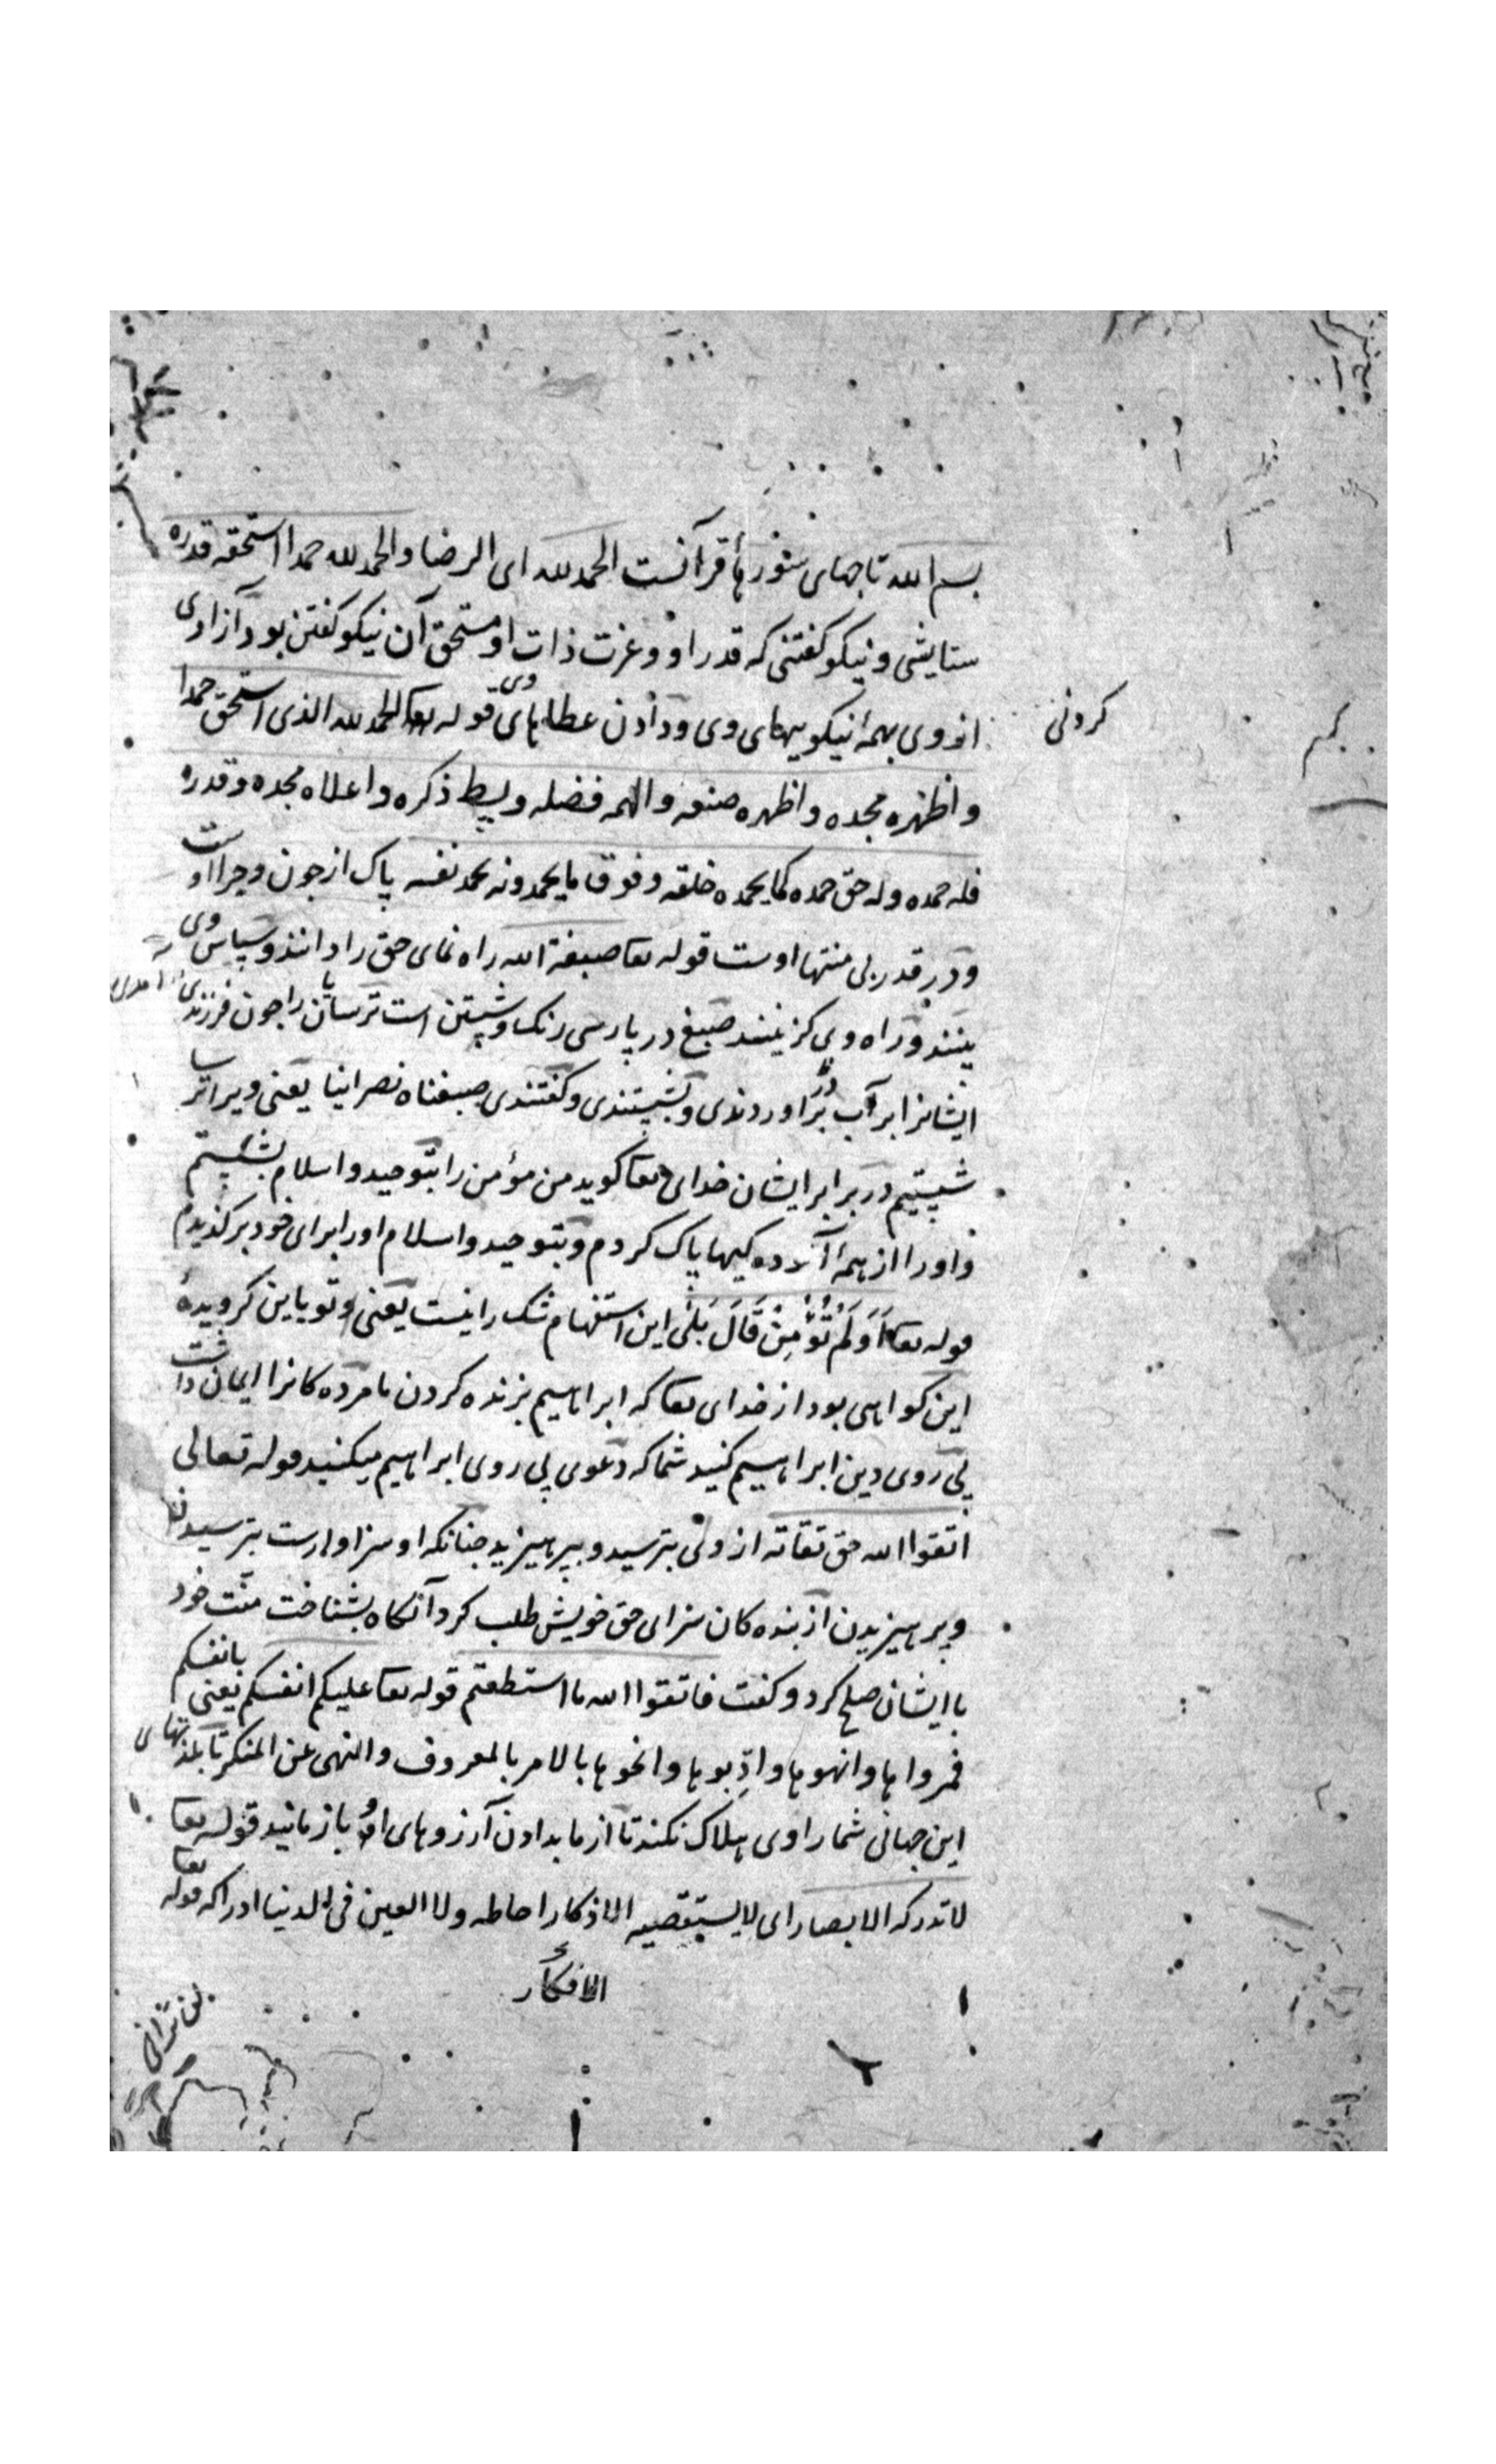 بسم الله تاجهای سورهٔ قرآنست الحمد لله ای الرضا والحمد لله حمدا استحقه قدره
ستایشی و نیکو کفتنی که قدر او و عزت ذات او مستحق آن نیکو کفتن بود آزادی
کردنی
از وی بهمه نیکوییهای وی و دادن عطاهای وی قوله تعا الحمد لله الذی استحق حمدا
و اظهره مجده و اظهره صنعه و الهمه فضله و بسط ذکره و اعلاه مجده و قدره
فله حمده و له حق حمده کما یحمده خلقه و فوق ما یحمدونه بحمد نفسه پاک از جون و جرا اوست
و در قدر بی منتها اوست قوله تعا صبغة الله راه نمای حق را دانند و سپاس وی
بینند و راه وی کزینند صبغ در پارسی رنک و شستن است ترسایان را جون فرزندی
ایشانرا بر آب در آوردندی و بشستندی و کفتندی صبغناه نصرانیا یعنی ویرا ترسا
شستیم در برابر ایشان خدای تعا کوید من مؤمن را بتوحید و اسلام بشستم
و او را از همه آلوده کیها پاک کردم و بتوحید و اسلام او را برای خود برکزیدم
قوله تعا اَوَلَم تُؤْمِنْ قَالَ بَلَی این استفهام شک را نیست یعنی و تو باین کرویدهٔ
این کواهی بود از خدای تعا که ابراهیم بزنده کردن ما مرده کانرا ایمان داشت
پی روی دین ابراهیم کنید شما که دعوی پی روی ابراهیم میکنید قوله تعالی
اتقوا الله حق تقاته از وی بترسید و بپرهیزید جنانکه او سزاوارست بترسیدن
و پرهیزیدن از بنده کان سزای حق خویش طلب کرد آنکاه بشناخت منّت خود
با ایشان صلح کرد و کفت فاتقوا الله ما استطعتم قوله تعا علیکم انفسکم یعنی بانفسکم
فمروا ها و انهوها و ادّبوها و انحوها بالامر بالمعروف و النهی عن المنکر تا بلذتهای
این جهانی شما را وی هلاک نکند تا از ما بدادن آرزوهای او باز نمانید قوله تعا
لا تدرکه الابصار ای لا یستقصیه الاذکار احاطه و لا العین فی الدنیا ادراکه قوله تعا
الافکار